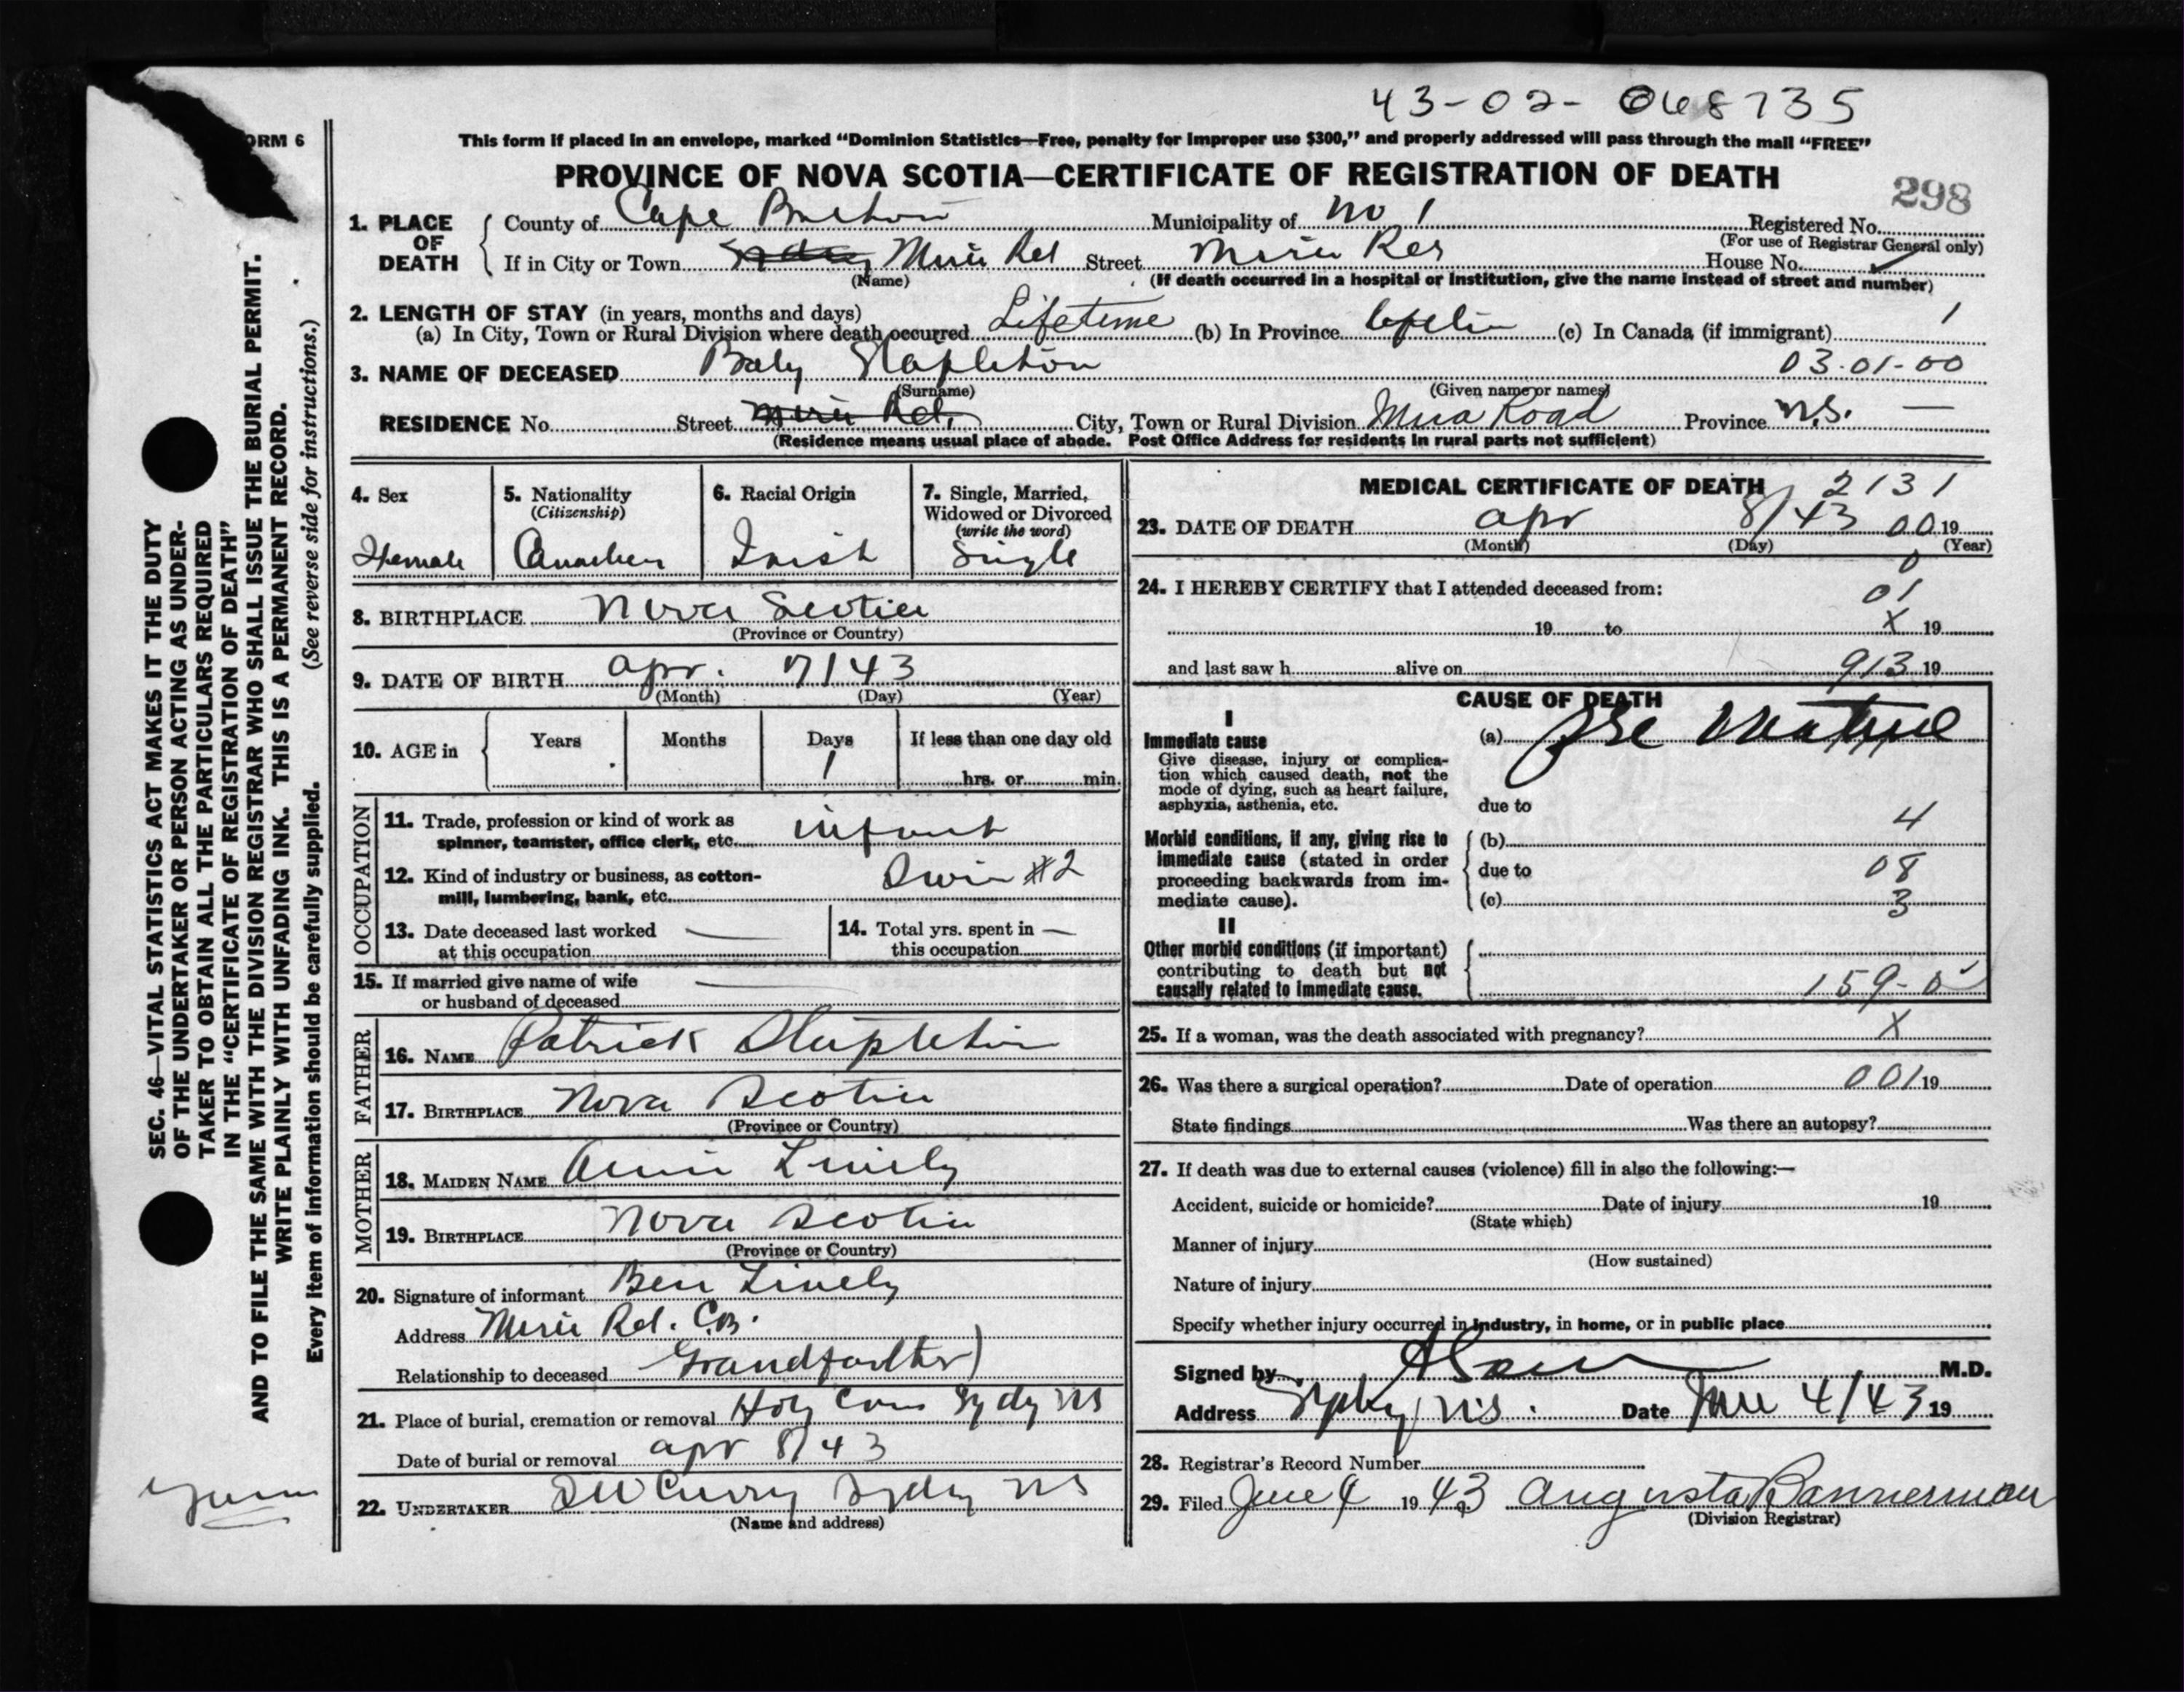 43-02-068735
FORM 6
This form if placed in an envelope, marked "Dominion Statistics—Free, penalty for improper use $300," and properly addressed will pass through the mail "FREE"
PROVINCE OF NOVA SCOTIA—CERTIFICATE OF REGISTRATION OF DEATH
298
1. PLACE OF DEATH
County of Cape Breton Municipality of No 1 Registered No.
(For use of Registrar General only)
If in City or Town Sydney Mira Rd Street Mira Rd House No.
(Name) (If death occurred in a hospital or institution, give the name instead of street and number)
2. LENGTH OF STAY (in years, months and days)
(a) In City, Town or Rural Division where death occurred Lifetime (b) In Province (c) In Canada (if immigrant) 1
3. NAME OF DECEASED Baby Stapleton 03-01-00
(Surname) (Given name or names)
RESIDENCE No. Street Mira Rd. City, Town or Rural Division Mira Road Province N.S. —
(Residence means usual place of abode. Post Office Address for residents in rural parts not sufficient)
4. Sex
Female
5. Nationality
(Citizenship)
Canadian
6. Racial Origin
Irish
7. Single, Married, Widowed or Divorced
(write the word)
Single
8. BIRTHPLACE Nova Scotia
(Province or Country)
9. DATE OF BIRTH Apr. 7/43
(Month) (Day) (Year)
10. AGE in Years Months Days If less than one day old
1 hrs. or min.
OCCUPATION
11. Trade, profession or kind of work as spinner, teamster, office clerk, etc. infant
12. Kind of industry or business, as cotton-mill, lumbering, bank, etc. Twin #2
13. Date deceased last worked at this occupation —
14. Total yrs. spent in this occupation —
15. If married give name of wife or husband of deceased —
FATHER
16. NAME Patrick Stapleton
17. BIRTHPLACE Nova Scotia
(Province or Country)
MOTHER
18. MAIDEN NAME Annie Lively
19. BIRTHPLACE Nova Scotia
(Province or Country)
20. Signature of informant Ben Lively
Address Mira Rd. C.B.
Relationship to deceased Grandfather)
21. Place of burial, cremation or removal Holy Cross Sydy NS
Date of burial or removal Apr 8/43
22. UNDERTAKER Curry Sydy NS
(Name and address)
MEDICAL CERTIFICATE OF DEATH 2131
23. DATE OF DEATH Apr 8/43 00 19
(Month) (Day) (Year)
0
24. I HEREBY CERTIFY that I attended deceased from: 01
19 to X 19
and last saw h alive on 913 19
CAUSE OF DEATH
I
Immediate cause
Give disease, injury or complication which caused death, not the mode of dying, such as heart failure, asphyxia, asthenia, etc.
(a)
due to
4
Morbid conditions, if any, giving rise to immediate cause (stated in order proceeding backwards from immediate cause).
(b)
due to 08
(c) 3
II
Other morbid conditions (if important) contributing to death but not causally related to immediate cause.
159-0
25. If a woman, was the death associated with pregnancy? X
26. Was there a surgical operation? Date of operation 001 19
State findings Was there an autopsy?
27. If death was due to external causes (violence) fill in also the following:—
Accident, suicide or homicide? Date of injury 19
(State which)
Manner of injury
(How sustained)
Nature of injury
Specify whether injury occurred in industry, in home, or in public place
Signed by M.D.
Address Sydney NS. Date June 4/43 19
28. Registrar's Record Number
29. Filed June 4 1943 Augusta Bannerman
(Division Registrar)
SEC. 46—VITAL STATISTICS ACT MAKES IT THE DUTY
OF THE UNDERTAKER OR PERSON ACTING AS UNDER-
TAKER TO OBTAIN ALL THE PARTICULARS REQUIRED
IN THE "CERTIFICATE OF REGISTRATION OF DEATH"
AND TO FILE THE SAME WITH THE DIVISION REGISTRAR WHO SHALL ISSUE THE BURIAL PERMIT.
WRITE PLAINLY WITH UNFADING INK. THIS IS A PERMANENT RECORD.
Every item of information should be carefully supplied. (See reverse side for instructions.)